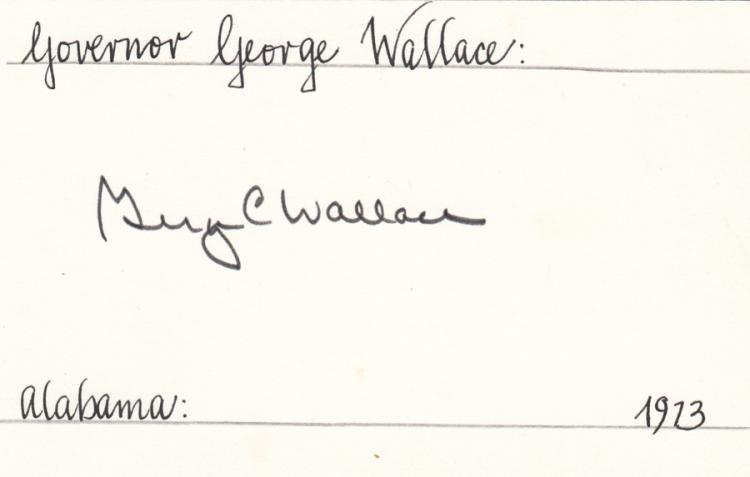 Governor George Wallace:
George C Wallace
Alabama: 1973